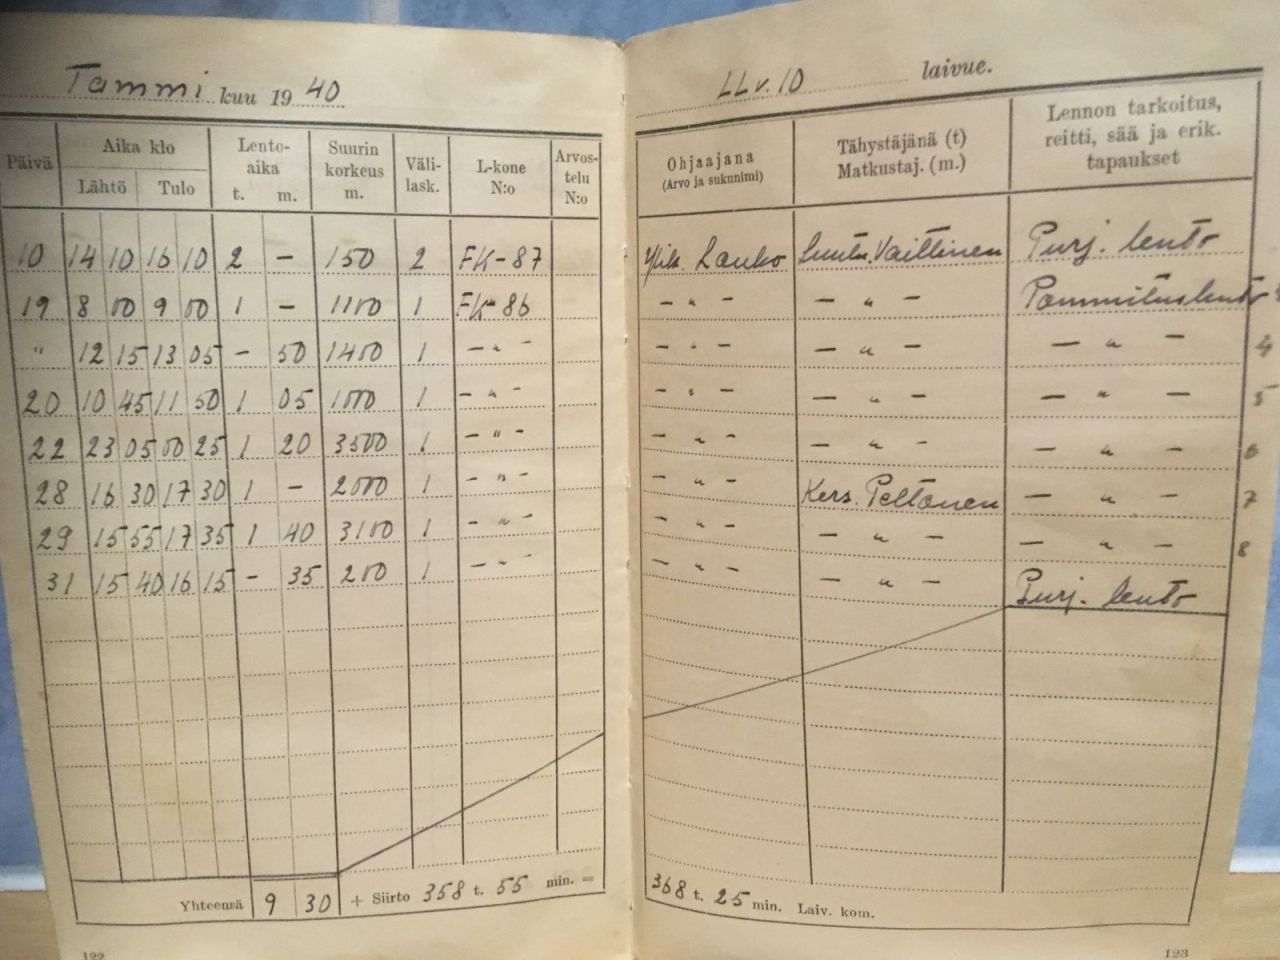 Tammi kuu 19 40
Päivä Aika klo Lento-aika Suurin korkeus m. Väli-lask. L-kone N:o Arvos-telu N:o
Lähtö Tulo t. m.
10 14 10 16 10 2 – 150 2 FK-87
19 8 00 9 00 1 – 1100 1 FK-86
" 12 15 13 05 – 50 1400 1 – " –
20 10 45 11 50 1 05 1000 1 – " –
22 23 05 00 25 1 20 3500 1 – " –
28 16 30 17 30 1 – 2000 1 – " –
29 15 55 17 35 1 40 3100 1 – " –
31 15 40 16 15 – 35 200 1 – " –
Yhteensä 9 30 + Siirto 358 t. 55 min. =
122
LLv. 10 laivue.
Ohjaajana (Arvo ja sukunimi) Tähystäjänä (t) Matkustaj. (m.) Lennon tarkoitus, reitti, sää ja erik. tapaukset
Ylik. Lauko Luutn. Vaittinen Purj. lento
– " – – " – Pommituslento
– " – – " – – " – 4
– " – – " – – " – 5
– " – – " – – " – 6
– " – Kers. Peltonen – " – 7
– " – – " – – " – 8
– " – – " – Purj. lento
368 t. 25 min. Laiv. kom.
123